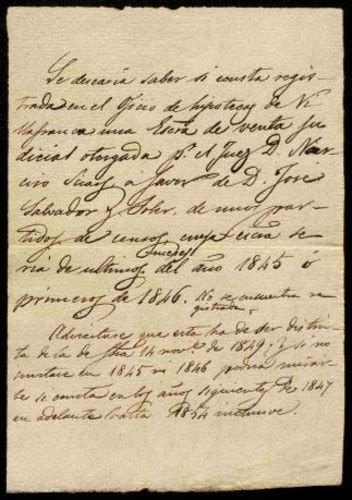 Se desearia saber si consta regis-
trada en el Oficio de hipotecas de Vi-
llafranca una Escra. de venta ju-
dicial otorgada pr. el Juez D. Nar-
ciso a favor de D. Jose
Salvador y de unos par-
tidos de censos, cuya escra. se-
ria de ultimos del año 1845 ó
primeros de 1846. No se encuentra re-
gistrada.
Advirtiese que esta ha de ser distin-
ta de la de fha. 14 novre. de 1849; y si no
constase en 1845 ni 1846 podria mirar-
se si consta en los años siguientes de 1847
en adelante hasta 1854 inclusive.